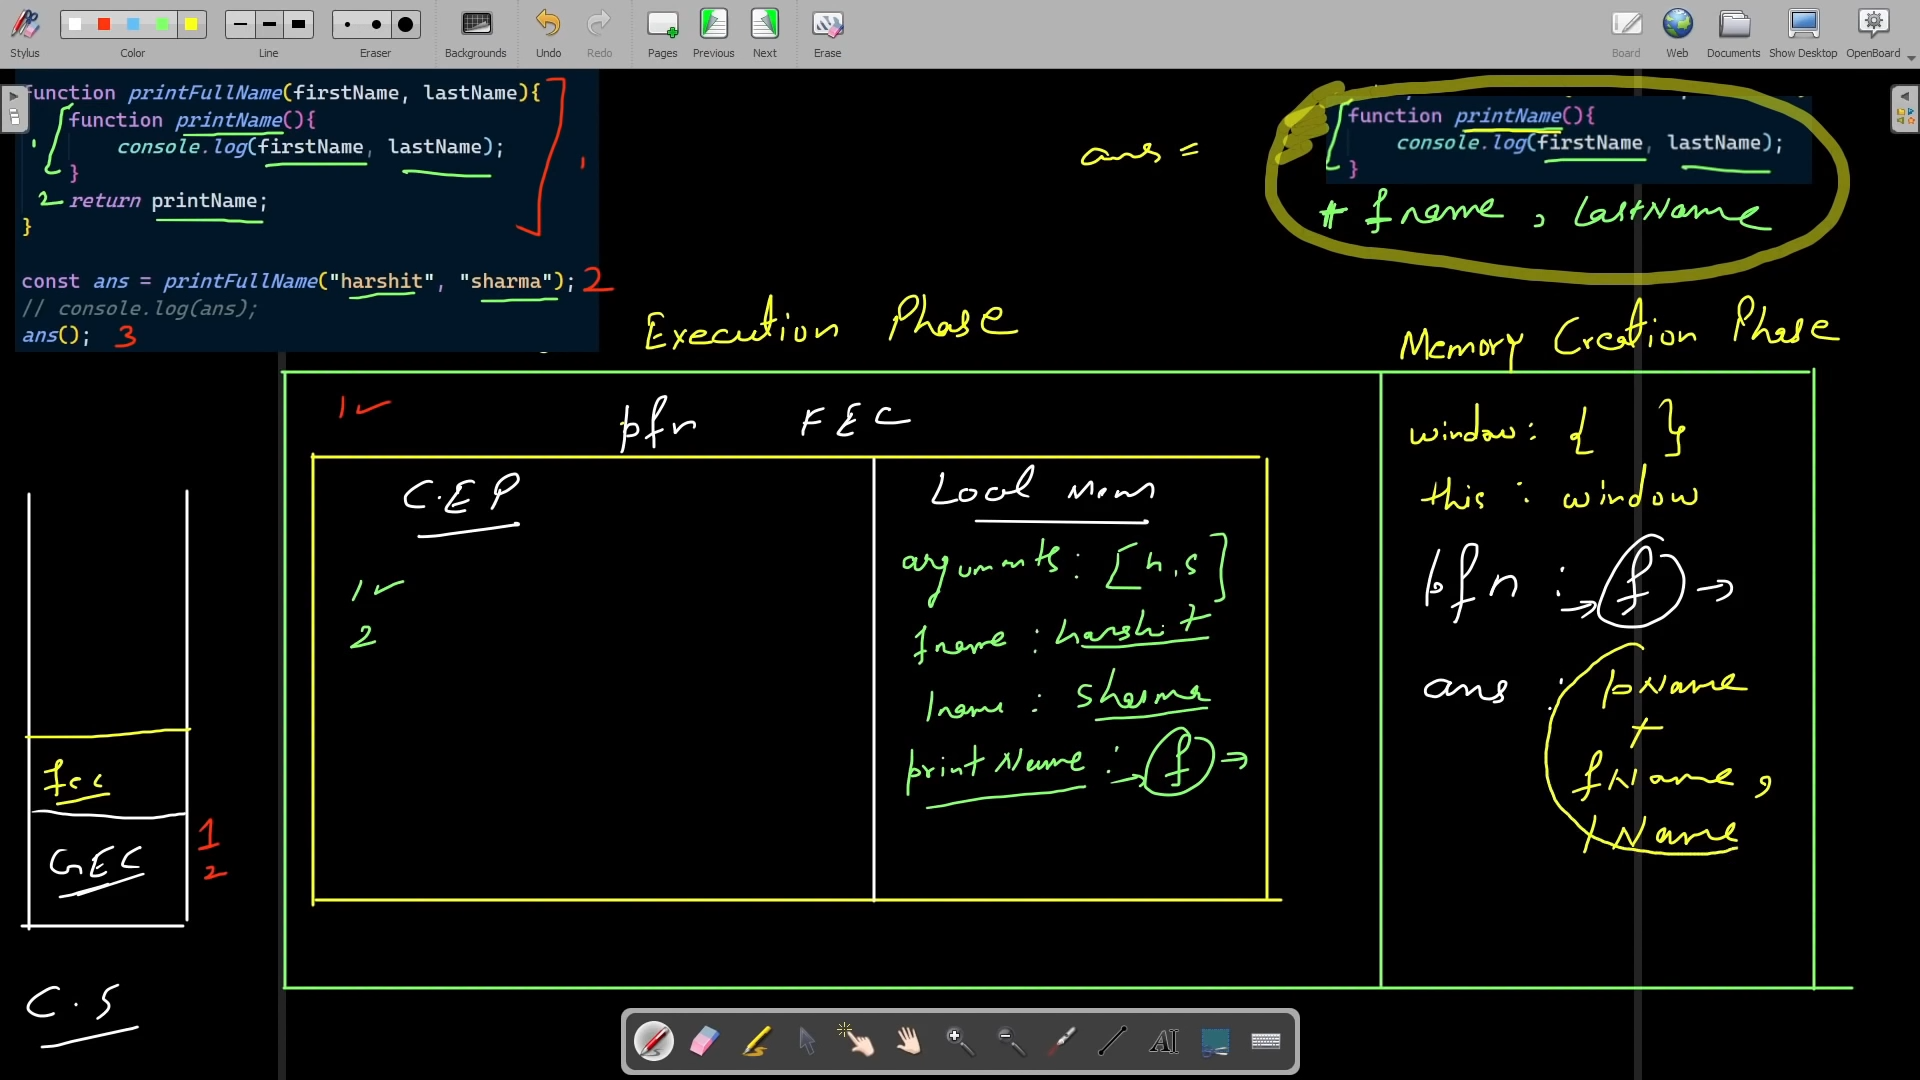 Stylus Color Line Eraser Backgrounds Undo Redo Pages Previous Next Erase Board Web Documents Show Desktop OpenBoard
function printFullName(firstName, lastName){
1 function printName(){
console.log(firstName, lastName);
}
2 return printName;
}
1
const ans = printFullName("harshit", "sharma"); 2
// console.log(ans);
ans(); 3
ans =
function printName(){
console.log(firstName, lastName);
}
+ fname , lastName
Execution Phase
Memory Creation Phase
1
pfn FEC
C.E.P
1
2
Local Mem
arguments: [h,s]
fname : harshit
lname : sharma
printName : → f →
window: { }
this : window
pfn : → f →
ans : pName
+
fName ,
lName
fec
GEC
1
2
C.S
AI